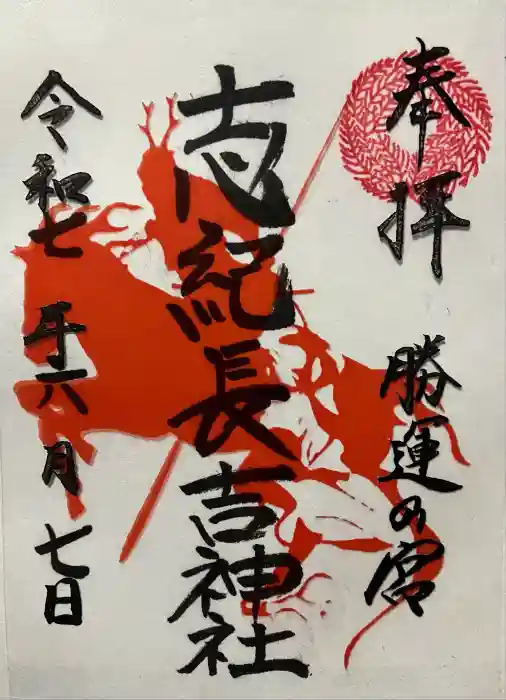 奉拝 勝運の宮
志紀長吉神社
令和七年六月七日